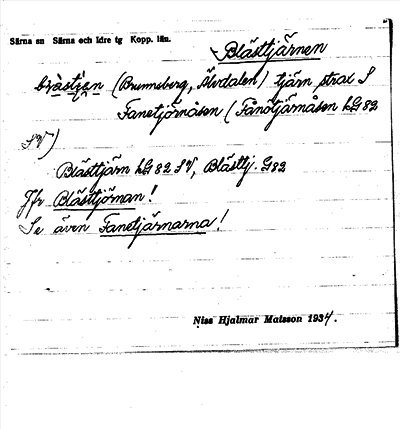 Särna sn Särna och Idre tg Kopp. län.
Blästtjärnen
(Brunneberg, Älvdalen) tjärn strax S
Fanetjörnåsen (Fånötjärnåsen hG82
SV)
Blästtjärn hG82 SV, Blästtj. G82
Jfr Blästtjörnan!
Se även Fanetjärnarna!
Nils Hjalmar Matsson 1934.